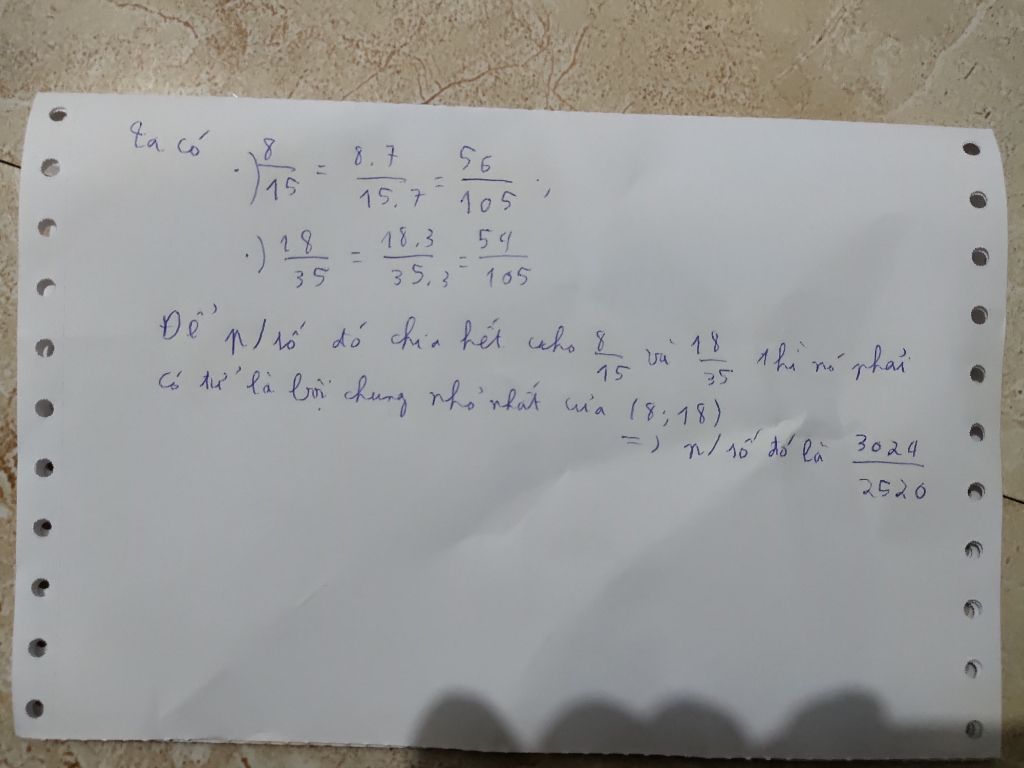 Ta có .) 8/15 = 8.7/15.7 = 56/105 ;
.) 18/35 = 18.3/35.3 = 54/105
Để p/số đó chia hết cho 8/15 và 18/35 thì nó phải
có tử là bội chung nhỏ nhất của (8; 18)
=> p/số đó là 3024/2520